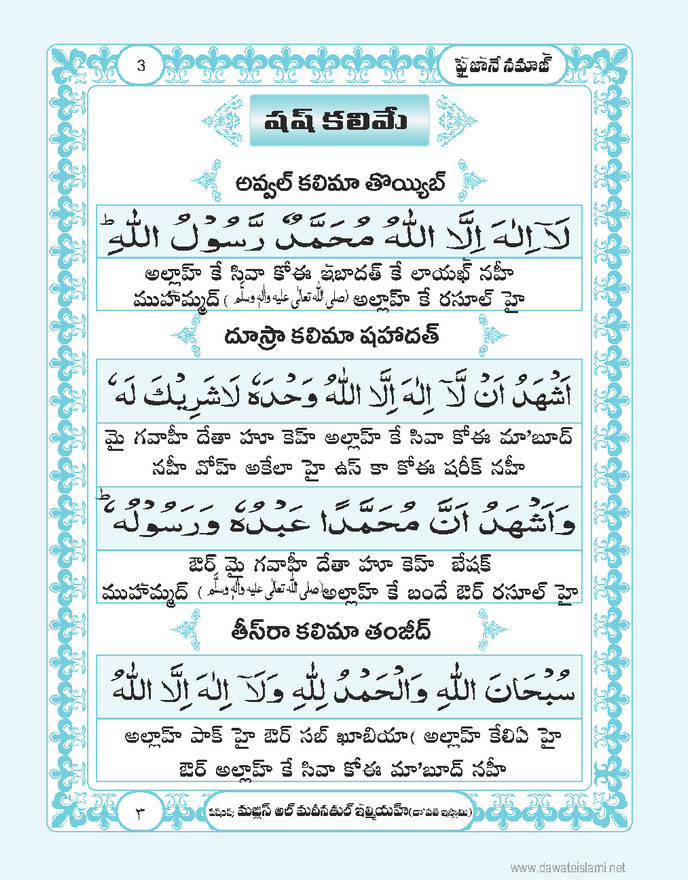 3
ఫైజానే నమాజ్
షష్ కలిమే
అవ్వల్ కలిమా తొయ్యిబ్
لَآ اِلٰهَ اِلَّا اللّٰهُ مُحَمَّدٌ رَّسُوْلُ اللّٰهِ ؕ
అల్లాహ్ కే సివా కోఈ ఇబాదత్ కే లాయఖ్ నహీ
ముహమ్మద్ (صلى الله تعالى عليه واله وسلم) అల్లాహ్ కే రసూల్ హై
దూస్రా కలిమా షహాదత్
اَشْهَدُ اَنْ لَّآ اِلٰهَ اِلَّا اللّٰهُ وَحْدَهٗ لَاشَرِيْكَ لَهٗ
మై గవాహీ దేతా హూ కెహ్ అల్లాహ్ కే సివా కోఈ మా'బూద్
నహీ వోహ్ అకేలా హై ఉస్ కా కోఈ షరీక్ నహీ
وَاَشْهَدُ اَنَّ مُحَمَّدًا عَبْدُهٗ وَرَسُوْلُهٗ ؕ
ఔర్ మై గవాహీ దేతా హూ కెహ్ బేషక్
ముహమ్మద్ (صلى الله تعالى عليه واله وسلم) అల్లాహ్ కే బందే ఔర్ రసూల్ హై
తీస్రా కలిమా తంజీద్
سُبْحَانَ اللّٰهِ وَالْحَمْدُ لِلّٰهِ وَلَآ اِلٰهَ اِلَّا اللّٰهُ
అల్లాహ్ పాక్ హై ఔర్ సబ్ ఖూబియా( అల్లాహ్ కేలిఏ హై
ఔర్ అల్లాహ్ కే సివా కోఈ మా'బూద్ నహీ
٣
మజ్లిస్ అల్ మదీనతుల్ ఇల్మియహ్(దా'వతే ఇస్లామి)
www.dawateislami.net